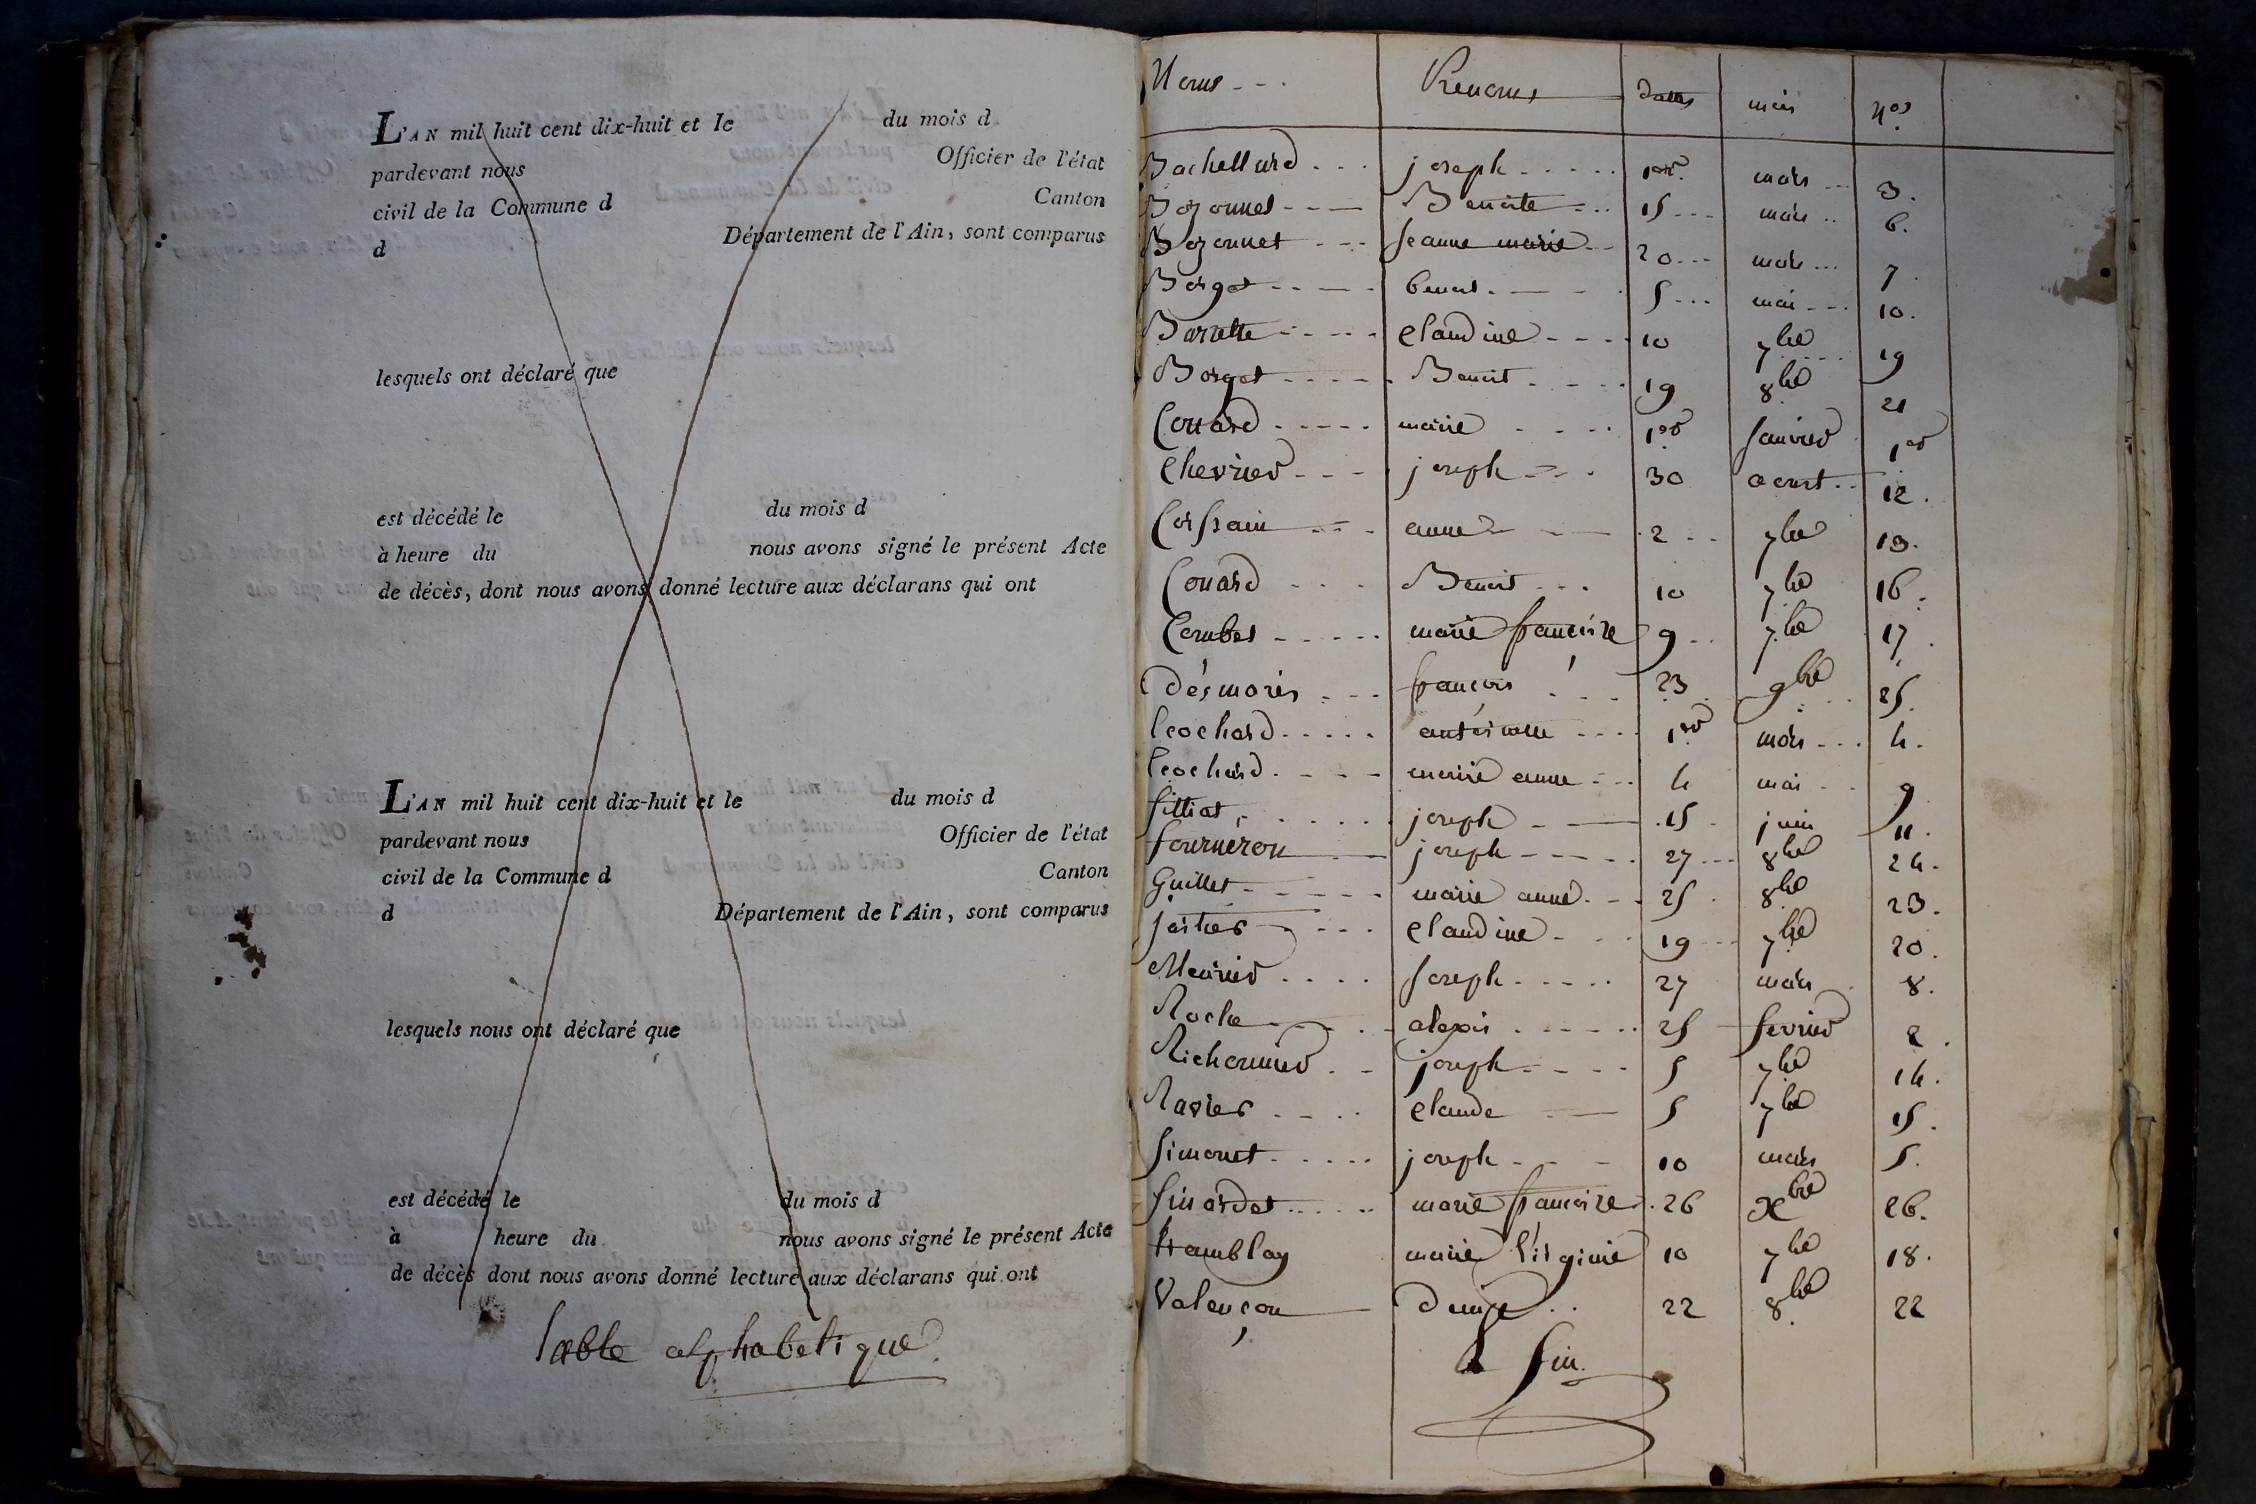 L'AN mil huit cent dix-huit et le du mois d
pardevant nous Officier de l'état
civil de la Commune d Canton
d Département de l'Ain, sont comparus
lesquels ont déclaré que
est décédé le du mois d
à heure du nous avons signé le présent Acte
de décès, dont nous avons donné lecture aux déclarans qui ont
L'AN mil huit cent dix-huit et le du mois d
pardevant nous Officier de l'état
civil de la Commune d Canton
d Département de l'Ain, sont comparus
lesquels nous ont déclaré que
est décédé le du mois d
à heure du nous avons signé le présent Acte
de décès dont nous avons donné lecture aux déclarans qui ont
Table alphabetique
Noms Prenoms dattes mois Nos
Bachellard joseph 1er mars 3.
Bozonnet Benoite 15 mars 6.
Bozonnet Jeanne marie 20 mars 7.
Borget benoit 5 mai 10.
Barratte claudine 10 7bre 19
Borget Benoit 19 8bre 21
Couard marie 1er Janvier 1er
Chevrier joseph 30 aoust 12.
anne 2 7bre 13.
Couard Benoit 10 7bre 16.
Combet marie francoise 9 7bre 17.
désmaris françois 23 9bre 25.
antoinette 1er mars 4.
marie anne 4 mai 9
filliat joseph 15 juin 11.
fourneron joseph 27 8bre 24.
Guillet marie anne 25 8bre 23.
claudine 19 7bre 20.
Meunier Joseph 27 mars 8.
Roche alexis 25 fevrier 2.
Richonnier joseph 5 7bre 14.
Ravier claude 5 7bre 15.
Simonet joseph 10 mars 5.
Sinardet marie francoise 26 Xbre 26.
tramblay marie Virginie 10 7bre 18.
Valençon denise 22 8bre 22
la fin.